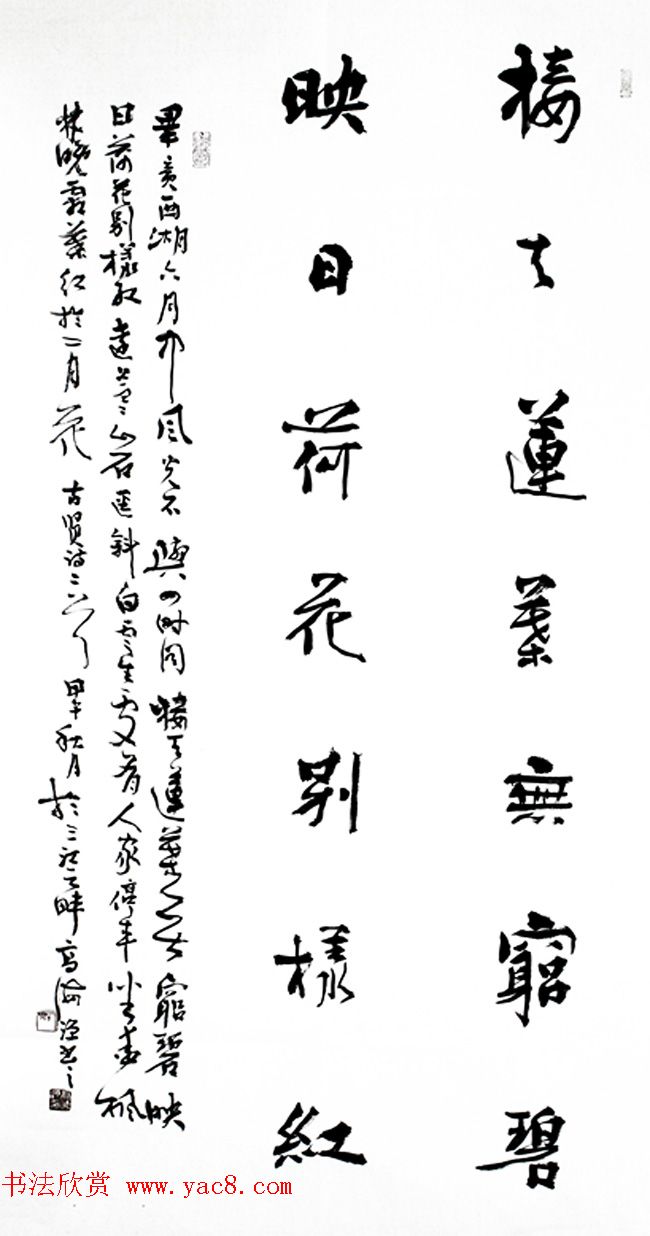 接天蓮葉無窮碧
映日荷花别樣紅
畢竟西湖六月中風光不與四时同接天蓮葉無窮碧映
日荷花别樣红遠上寒山石徑斜白雲生處有人家停車坐愛楓
林晚霜葉红於二月花 古贤詩二首 甲午秋月於三江之畔高海書之
书法欣赏 www.yac8.com